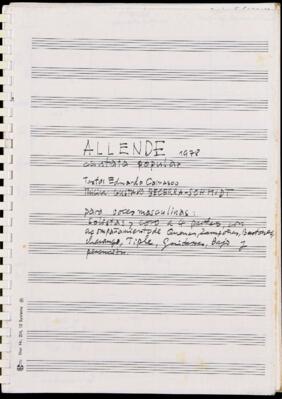 ALLENDE 1978
cantata popular
Texto: Eduardo Carrasco
Música: GUSTAVO BECERRA-SCHMIDT
para voces masculinas:
Solistas y coro a 4 partes, con
acompañamiento de Quenas, Zampoñas, Bastones,
charango, Tiple, Guitarras, Bajo y
percusión.
Star Nr. 12 Systeme